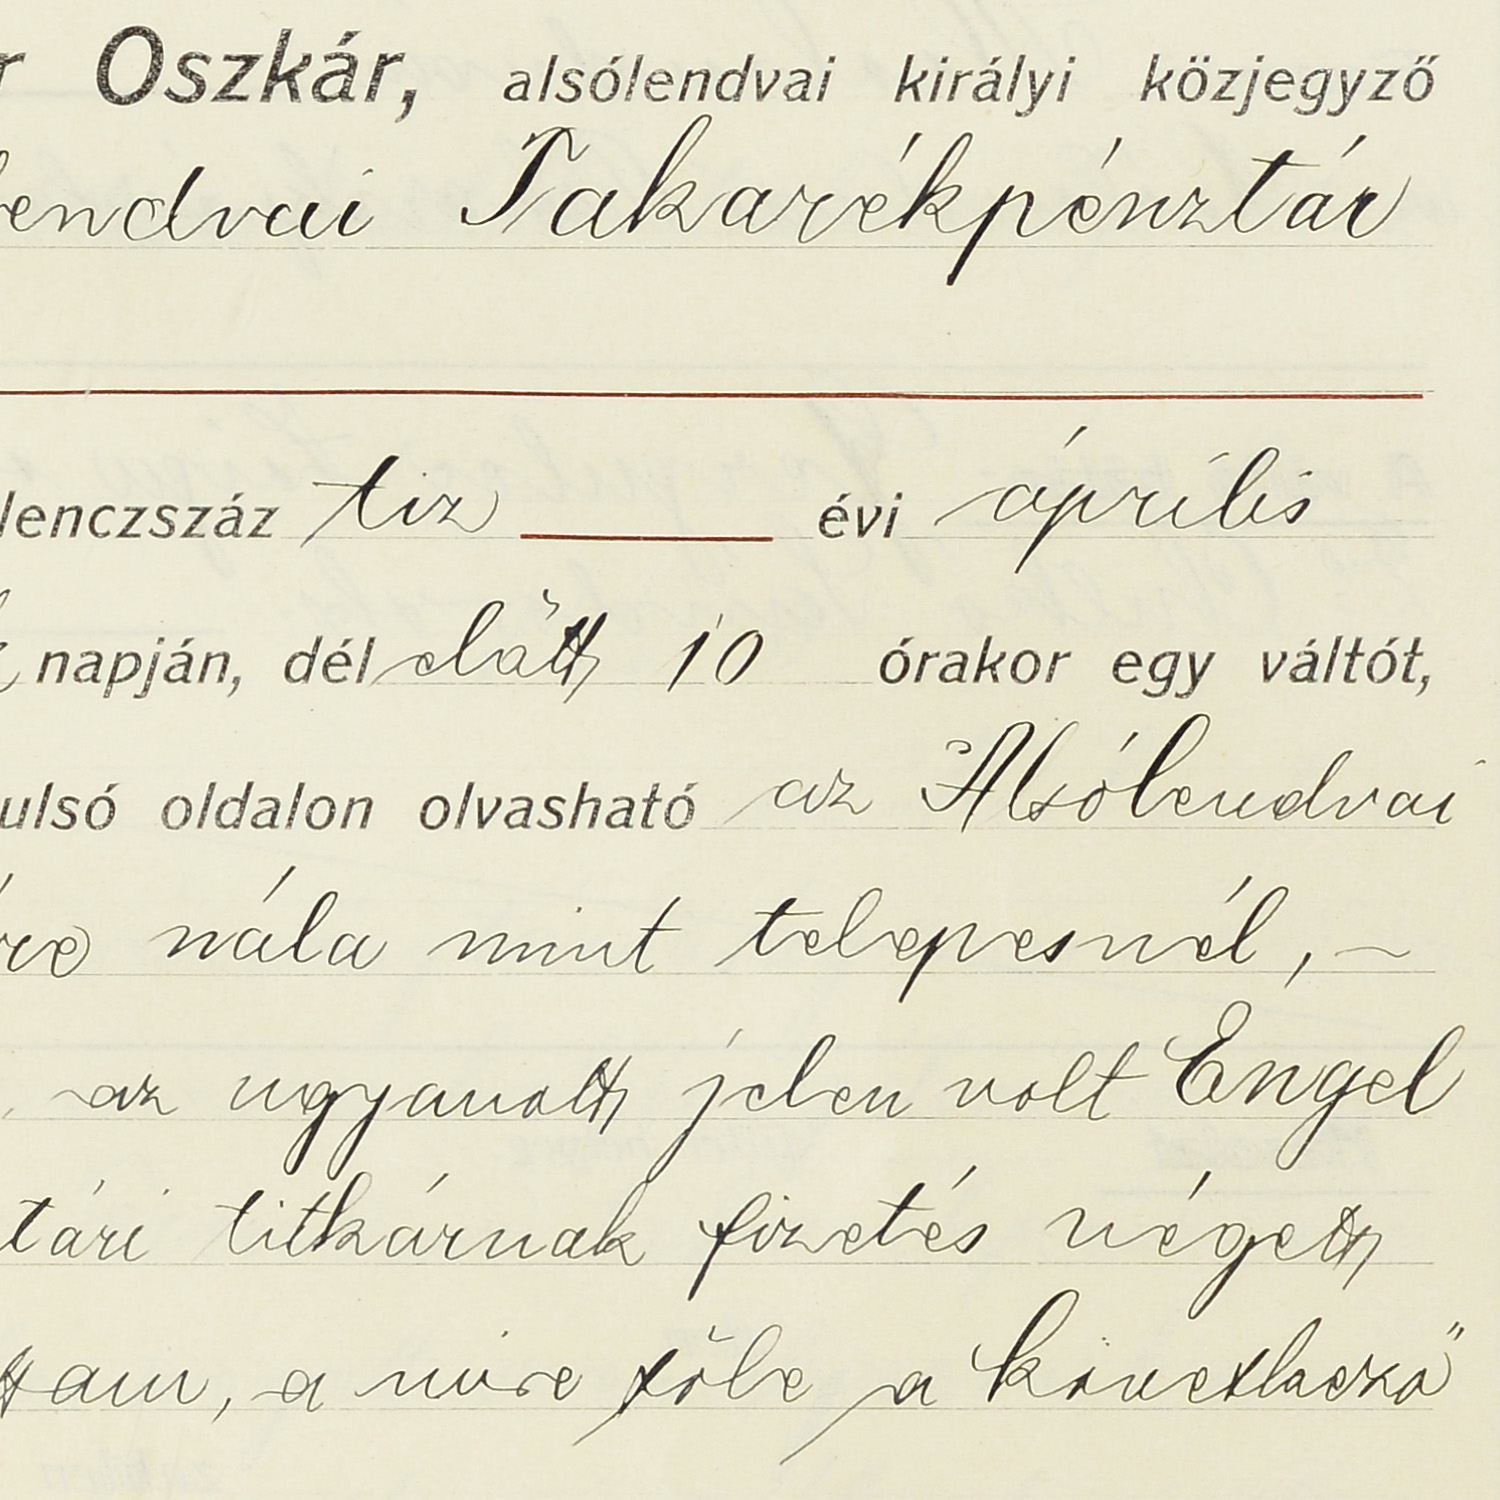 r Oszkár, alsólendvai királyi közjegyző
lendvai Takarékpénztár
lenczszáz tiz évi április
napján, dél előtt 10 órakor egy váltót,
ulsó oldalon olvasható az Alsólendvai
re nála mint telepesnél, –
az ugyanott jelen volt Engel
tári titkárnak fizetés végett
ttam, a mire tőle a következő